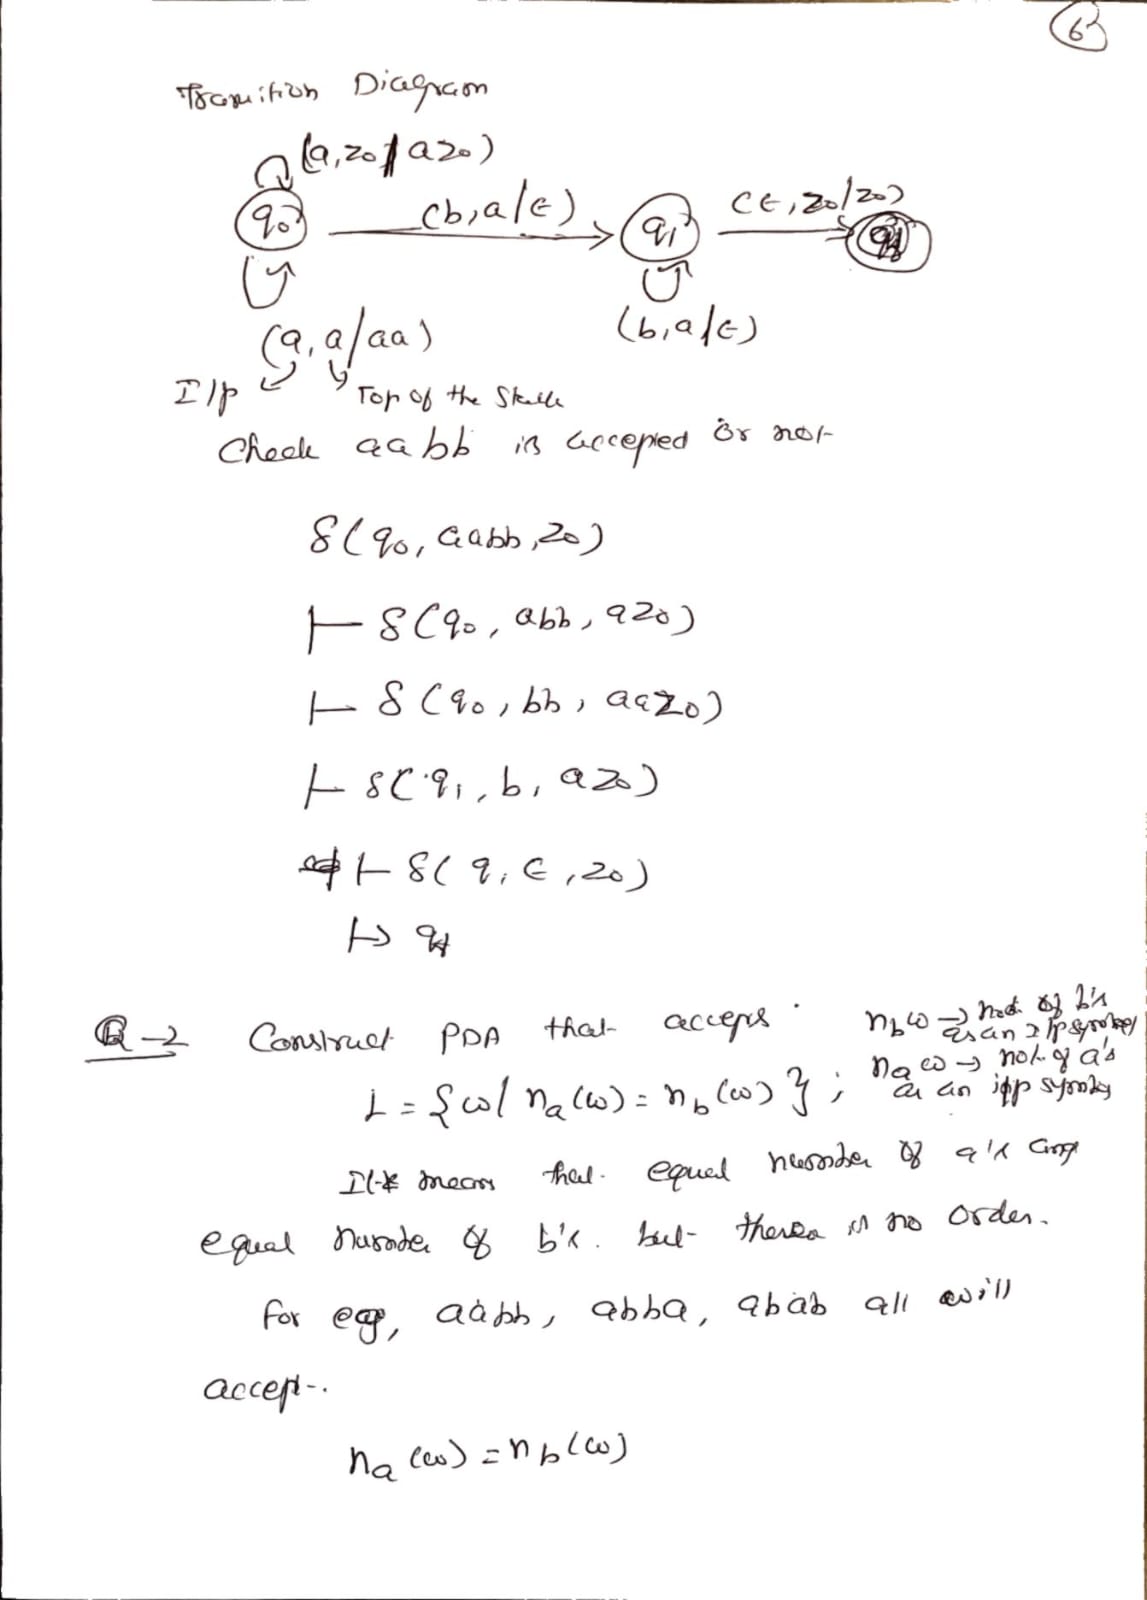 6
Transition Diagram
(a, z0/az0)
q0 (b, a/ε) q1 (ε, z0/z0) qf
(a, a/aa) (b, a/ε)
I/p Top of the Stack
Check aabb is accepted or not
δ(q0, aabb, z0)
⊢ δ(q0, abb, az0)
⊢ δ(q0, bb, aaz0)
⊢ δ(q1, b, az0)
⊢ δ(q, ε, z0)
⊢ qf
Q-2 Construct PDA that accepts
nbω → not of b's as an I/p symbol
L = {ω/ na(ω) = nb(ω)} ; naω → not. of a's as an i/p symbol
It means that equal number of a's and
equal number of b's. but there is no order.
For eg, aabb, abba, abab all will
accept.
na(ω) = nb(ω)